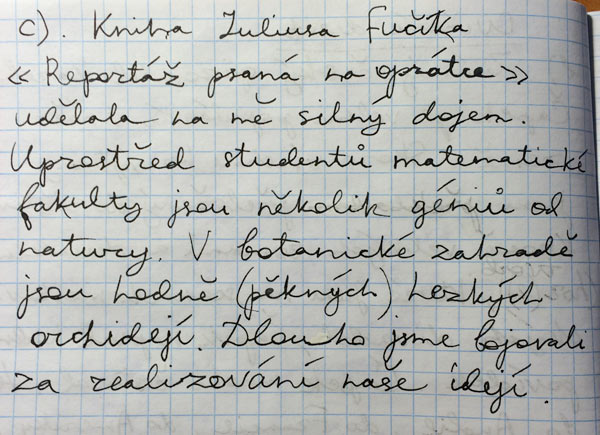 c). Kniha Juliusa Fučíka
« Reportáž psaná na oprátce »
udělala na mě silný dojem.
Uprostřed studentů matematické
fakulty jsou několik géniů od
natury. V botanické zahradě
jsou hodně (pěkných) hezkých
orchidejí. Dlouho jsme bojovali
za realizování naše idejí.